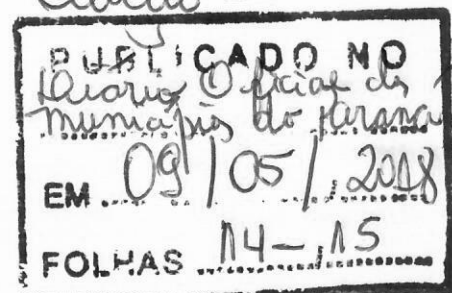 PUBLICADO NO
Diário Oficial dos
municípios do Paraná
EM 09/05/2018
FOLHAS 14-15